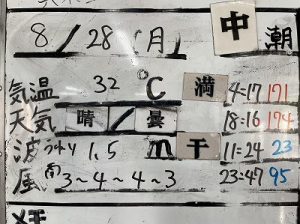 8/28(月) 中潮
気温 32℃ 満 4:17 171
天気 晴/曇 18:16 174
波 うねり 1.5m 干 11:24 23
風 南3~4~4~3 23:47 95